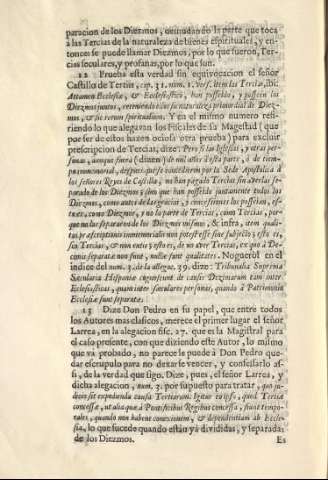 paracion de los Diezmos, desnudando la parte que toca
a las Tercias de la naturaleza de bienes espirituales, y en-
tonces se puede llamar Diezmos, por lo que fueron, Ter-
cias seculares, y profanas, por lo que son.
12 Prueba esta verdad sin equivocacion el señor
Castillo de Tertiis, cap. 31. num. 1. vers. Item las Tercias, ibi:
Attamen Ecclesiæ, & Ecclesiastici, han posseido, y posseen los
Diezmos juntos, reteniendo en sì su naturaleza primordial de Diez-
mos, & sic rerum spiritualium. Y en el mismo numero refi-
riendo lo que alegavan los Fiscales de su Magestad (que
por ser de estos hazen ociosa otra prueba) para excluir
prescripcion de Tercias, dize: Pero si las Iglesias, y otras per-
sonas, aunque fuera (dizen) de mil años à esta parte, ò de tiem-
po inmemorial, despues que se concedieron por la Sede Apostolica à
los señores Reyes de Castilla, no han pagado Tercias sin averlas se-
parado de los Diezmos, sino que han posseido juntamente todos los
Diezmos, como antes de las gracias, y concessiones los posseìan, es-
to es, como Diezmos, y no la parte de Tercias, como Tercias, por-
que no las separaron de los Diezmos mismos, & infra, item quali-
tas præscriptionis immemorialis non potest esse sine subjecto, y esto es,
sin Tercias, & non entis, y esto es, de no aver Tercias, ex quo à De-
cimis separatæ non sunt, nullæ sunt qualitates. Noguerol en el
indice del num. 3. de la allegac. 29. dize: Tribunalia Suprema
Sæcularia Hispaniæ cognoscunt de causis Dezimarum tam inter
Ecclesiasticas, quam inter sæculares personas, quando à Patrimonio
Ecclesiæ sunt separatæ.
13 Dize Don Pedro en su papel, que entre todos
los Autores mas clasicos, merece el primer lugar el señor
Larrea, en la alegacion fisc. 27. que es la Magistral para
el caso presente, con que diziendo este Autor, lo mismo
que va probado, no parece le puede à Don Pedro que-
dar escrupulo para no dexarse vencer, y confessarlo as-
si, de la verdad que sigo. Dize, pues, el señor Larrea, y
dicha alegacion, num. 2. por supuesto para tratar, quo ju-
dicio sit expedienda causa Tertiarum: Igitur eo ipso, quod Tertiæ
concessæ, ut alia quæ à Pontificibus Regibus concessa, sunt tempo-
rales, quando non habent connexionem, & dependentiam ab Eccle-
sia, lo que sucede quando estàn yà divididas, y separadas
de los Diezmos. Es